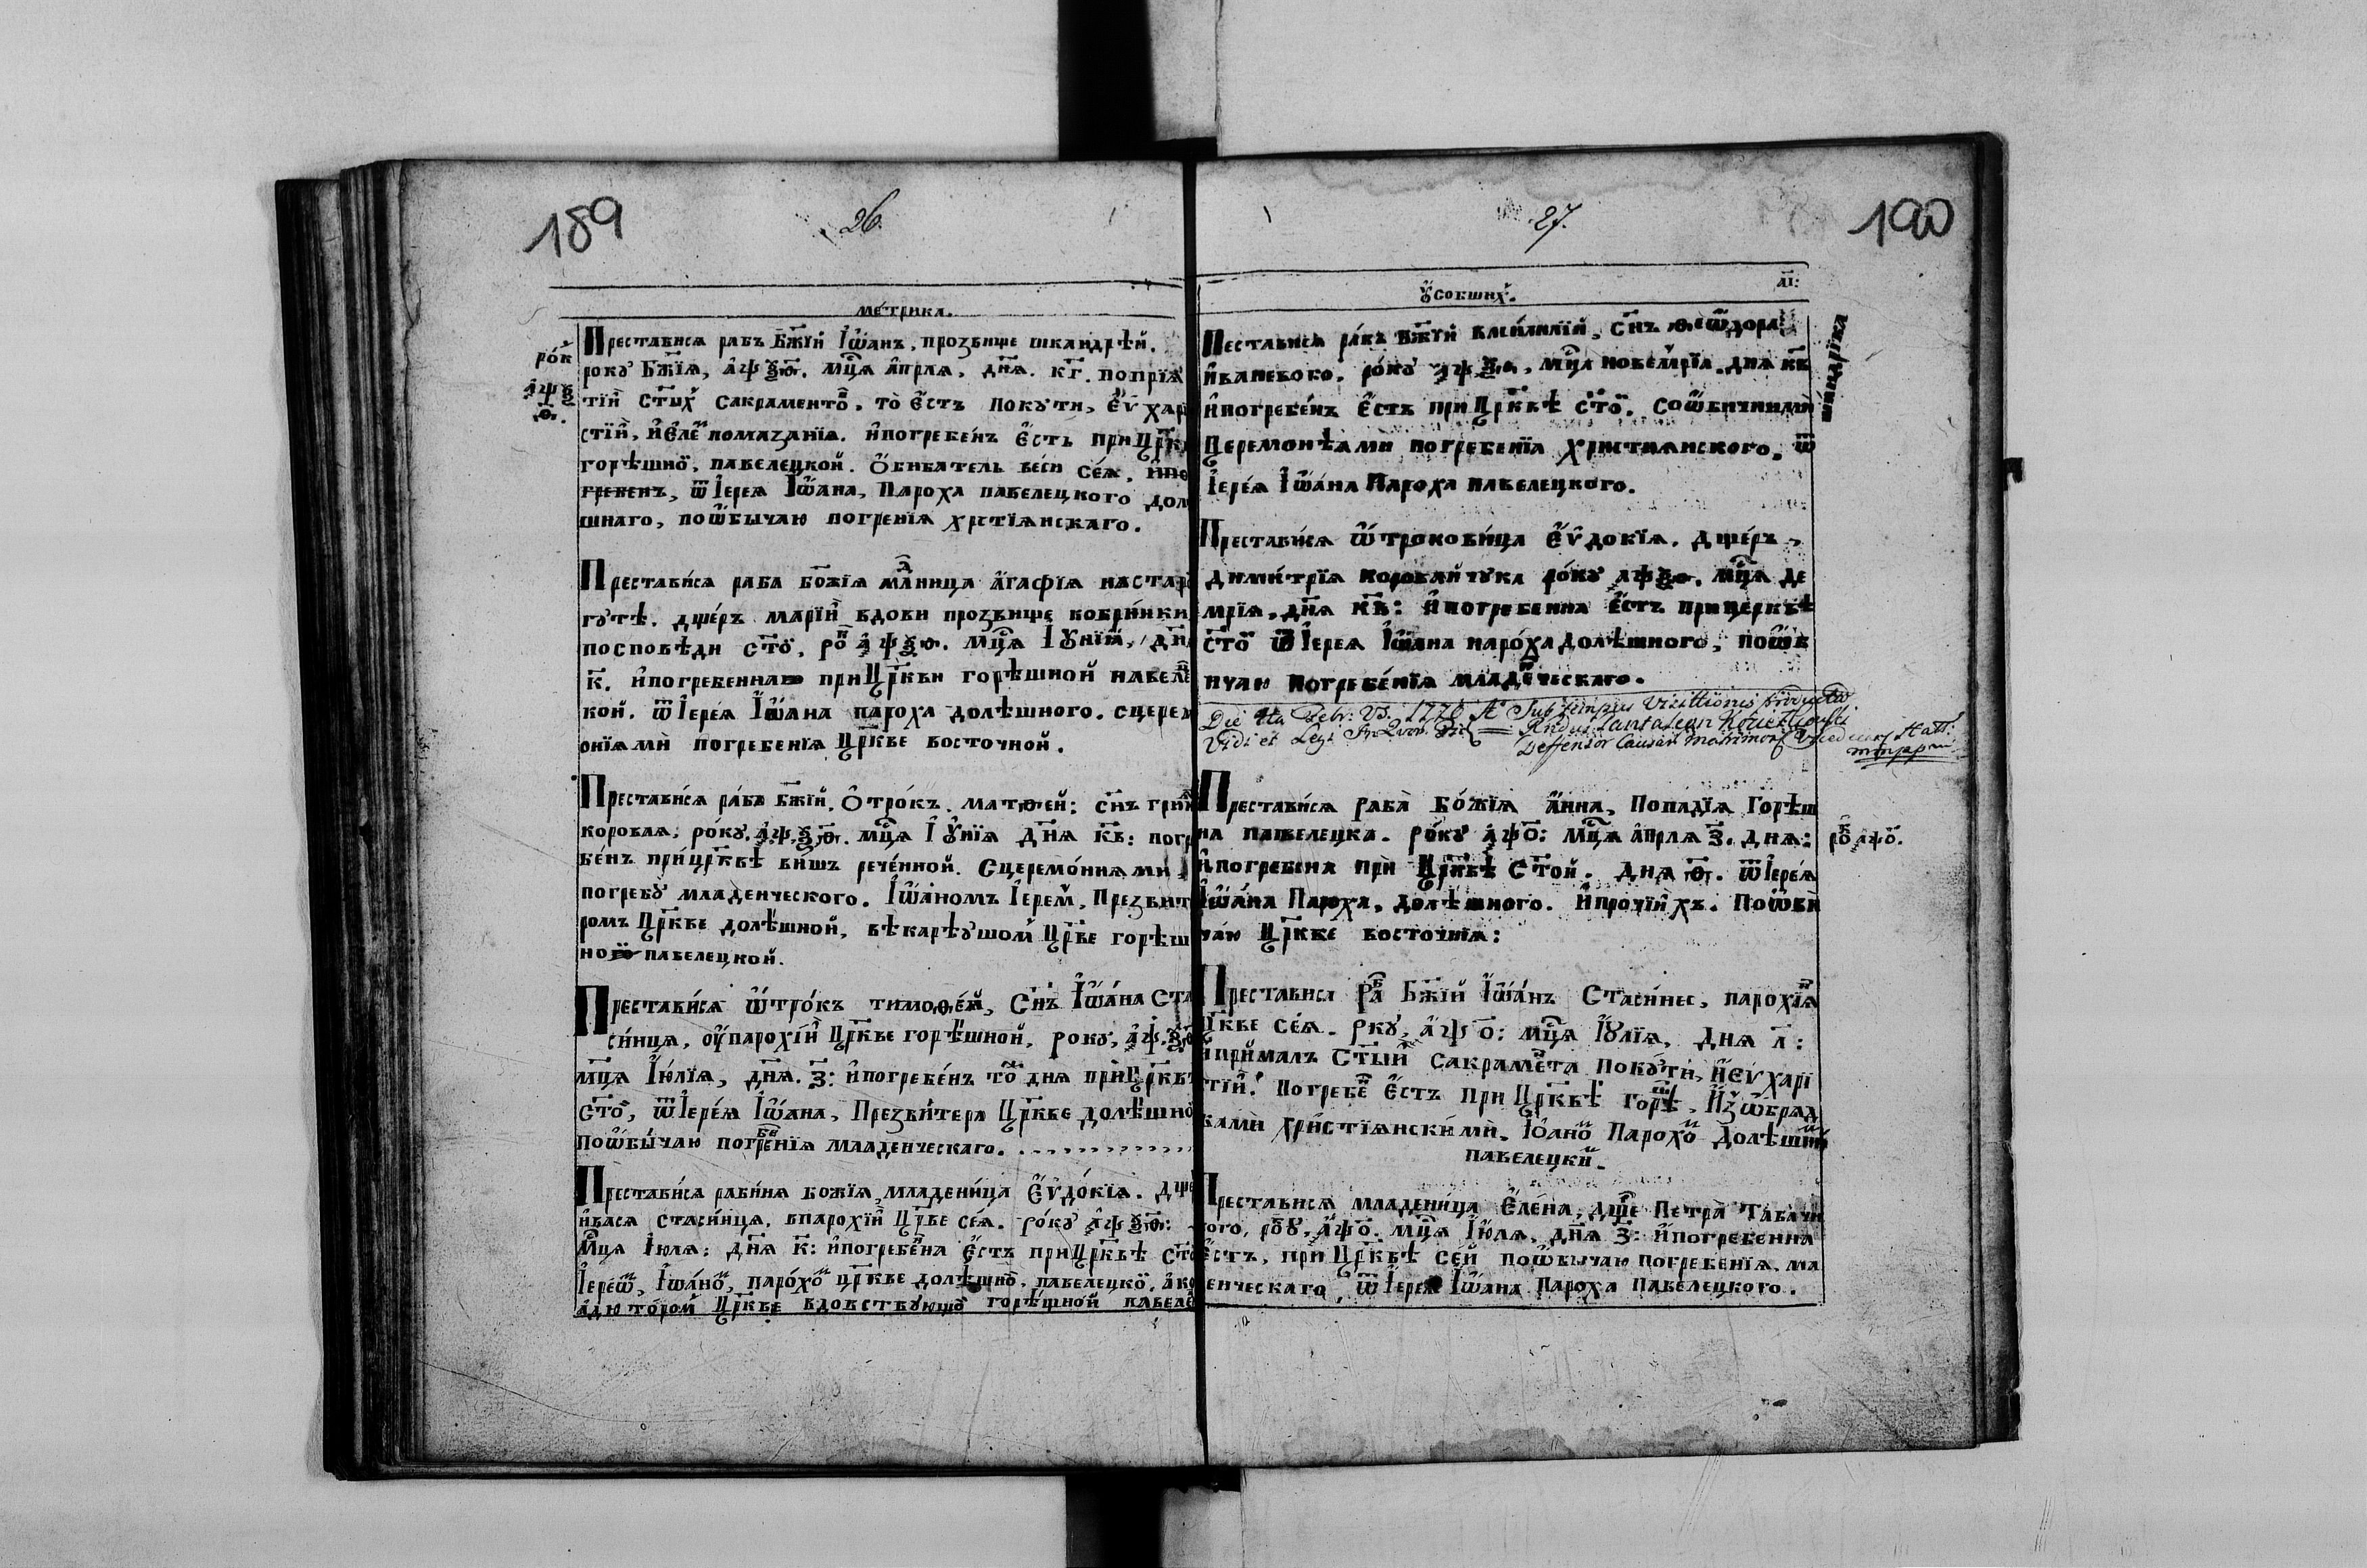 189
26.
Метрика.
рок
҂аѱѯ
ѳ.
Преставися рабъ Бж҃ій Іѡ҃анъ, прозвище шкандрѣй.
року Бж҃ія, ҂аѱѯѳ. мц҃я апрля, дн҃я. кг. поприя
тій ст҃ых сакраментѡ, то єсть покути, Єѵхар
стій, и Єлє помазанія. и погребен єсть при Цр҃кв
горѣшно, павелецкой. Ѻбиватель веси сея, ипо
гребенъ, ѿ Іерея Іѡ҃ана, Пароха павелецкого дол
шнаго, по ѡбычаю погренія хр҃тіянскаго.
Преставися раба божія млд҃ница Агафія на стар
гутѣ. дщеръ маріи вдови прозвище бобрински
по сповѣди ст҃о, ро ҂аѱѯѳ. мц҃я Іунія, дн҃я
к. и погребенная при Цр҃кви горѣшной павеле
кой. ѿ Іерея Іѡана пароха долѣшного. сцерем
оніями погребенія Цр҃кве восточной.
Преставися рабъ бж҃ій. Ѻтрокъ. матѳей: сн҃ъ гри
коровая, року. ҂аѱѯѳ. мц҃я Іунія дн҃я кв: погр
бенъ при цр҃квѣ вишъ реченной. Сцеремониями
погребу младенческого. Іѡаномъ Іерем, Презвит
ромъ Цр҃кве долѣшной, вѣкарѣушом Цр҃ве горѣш
ной павелецкой.
Преставися ѡтрокъ тимоѳей, Сн҃ъ Іѡ҃ана Ста
синця, оу парохій Цр҃кве горѣшной, року, ҂аѱѯѳ
мц҃я Іюлія, дн҃я. з: и погребенъ то дня при Цр҃квѣ
ст҃о, ѿ Іерея Іѡана, Презвитера Цр҃кве долѣшно
по ѡбычаю погребенія младенческаго.
Преставися рабиня божія, младеница Єѵдокія. дще
ивася стасинця, впарохій Цр҃ве сея. року ҂аѱѯѳ:
мц҃я Іюля: дн҃я к: и погребена єсть при Цр҃квѣ ст҃о
Іерєѡ, Іѡано, парохо цр҃кве долѣшно, павелецко, ако
адютором Цр҃кве вдовствующо горѣшной павеле
27.
190
Усопших.
аі:
Преставися рабъ Бж҃ій Василій, сн҃ъ Ѳеѡдора
Иваневого. року ҂аѱѯѳ, мц҃я новемрія. дня кв
и погребенъ єсть при Цр҃квѣ ст҃о. со ѡбичними
Церемонѣами погребенія христианского, ѿ
Іерея Іѡана Пароха павелецкого.
Преставися ѡтроковица Єѵдокія. дщеръ
димитрія коровайчука року ҂аѱѯѳ. мц҃я де
мрія, дн҃я кв: и погребенна єсть при церквѣ
ст҃о ѿ Іерея Іѡана пароха долѣшного, по ѡб
ичаю погребенія младенческаго.
Die 4ta Febr: VS. 1776 A Sub tempus Visittionis
Vidi et Legi In Quor.
Deffensor Causar Matrimon
Преставися раба Божія Анна, Попадія Горѣш
на павелецка. року ҂аѱо: мц҃я апрля з. дня:
и погребена при Цр҃квѣ Ст҃ой. дня ѳ. ѿ Іерея
Іѡана Пароха, долѣшного. и прочіихъ. По ѡби
чаю Цр҃кве восточнія:
ро ҂аѱо.
Преставися ра Бж҃ій Іѡанъ Стасинес, парохія
Цр҃кве сея. рку, ҂аѱо: мц҃я Іулія, дня л:
и прймалъ Ст҃ый сакрамета покути, и Єѵхари
тій: погребе єсть при Цр҃квѣ горѣ, И з ѡбряд
ками христіянскими. Іѻано Парохо долѣшни
павелецки.
Преставися младеница Єлена, дще Петра Табачн
ого, рѻу, ҂аѱо. мц҃я Іюля, дн҃я з: и погребенна
єстъ, при Цр҃квѣ сей по ѡбычаю погребенія, мла
енческаго, ѿ Іерея Іѡана Пароха Павелецкого.